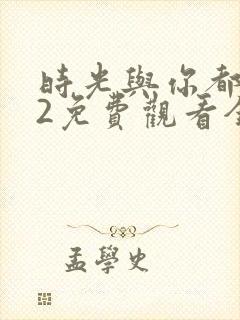 時光與你都
2免費觀看全
孟學史